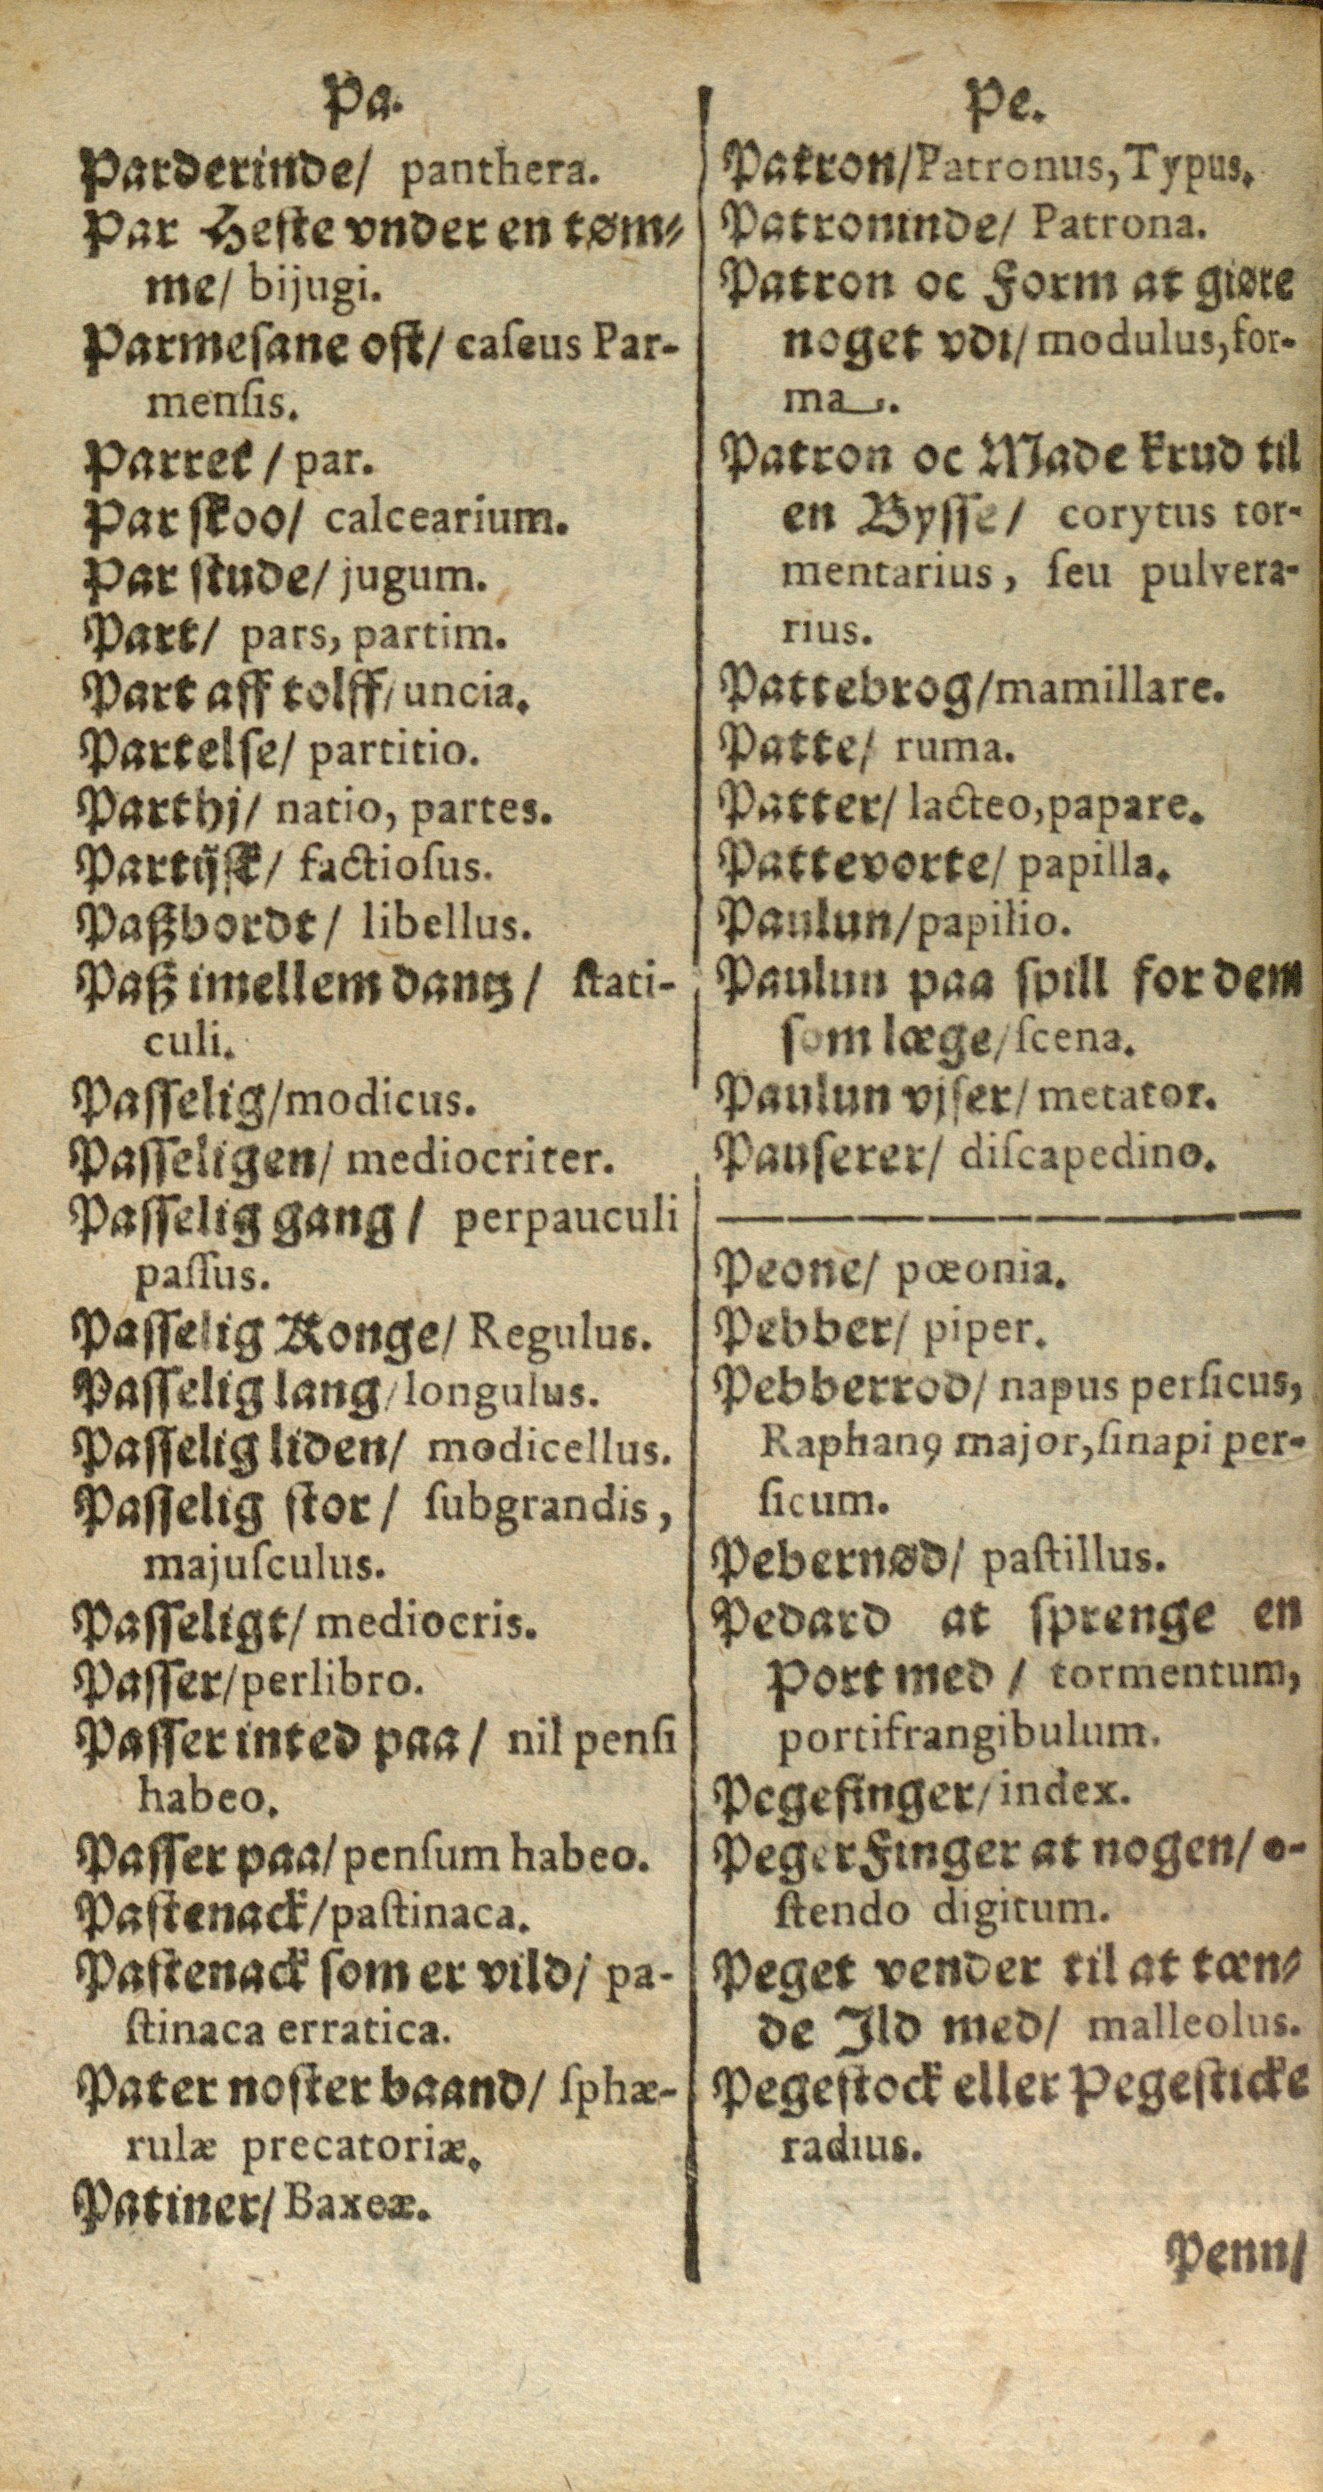 Pa.
Parderinde/ panthera.
Par Heſte vnder en tøm⸗
me/ bijugi.
Parmeſane oſt/ caſeus Par-
menſis.
Parret / par.
Par ſkoo/ calcearium.
Par ſtude/ jugum.
Part/ pars, partim.
Part aff tolff/ uncia.
Partelſe/ partitio.
Parthj/ natio, partes.
Partijſk/ factioſus.
Paßbordt/ libellus.
Paß imellem dantz/ ſtati-
culi.
Paſſelig/modicus.
Paſſeligen/ mediocriter.
Paſſelig gang/ perpauculi
paſſus.
Paſſelig Konge/ Regulus.
Paſſelig lang/longulus.
Paſſelig liden/ modicellus.
Paſſelig ſtor/ ſubgrandis,
majuſculus.
Paſſeligt/ mediocris.
Paſſer/perlibro.
Paſſer inted paa/ nil penſi
habeo.
Paſſer paa/ penſum habeo.
Paſtenack/paſtinaca.
Paſtenack ſom er vild/ pa-
ſtinaca erratica.
Pater noſter baand/ ſphæ-
rulæ precatoriæ.
Patiner/ Baxeæ.
Pe.
Patron/Patronus, Typus.
Patroninde/ Patrona.
Patron oc Form at giøre
noget vdi/ modulus, for-
ma.
Patron oc Made krud til
en Byſſe/ corytus tor-
mentarius, ſeu pulvera-
rius.
Pattebrog/mamillare.
Patte/ ruma.
Patter/ lacteo, papare.
Pattevorte/ papilla.
Paulun/papilio.
Paulun paa ſpill for dem
ſom læge/ſcena.
Paulun vjſer/ metator.
Pauſerer/ diſcapedino.
Peone/ pœonia.
Pebber/ piper.
Pebberrod/ napus perſicus,
Raphanꝰ major, ſinapi per-
ſicum.
Pebernød/ paſtillus.
Pedard at ſprenge en
Port med / tormentum,
portifrangibulum.
Pegefinger/index.
Peger Finger at nogen/ o-
ſtendo digitum.
Peget vender til at tæn⸗
de Ild med/ malleolus.
Pegeſtock eller Pegeſticke
radius.
Penn/